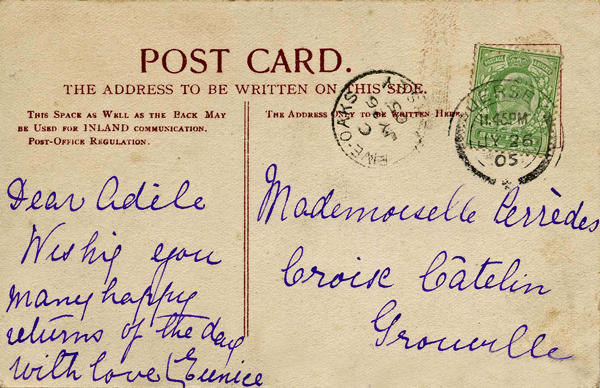 POST CARD.
THE ADDRESS TO BE WRITTEN ON THIS SIDE.
THIS SPACE AS WELL AS THE BACK MAY
BE USED FOR INLAND COMMUNICATION.
POST-OFFICE REGULATION.
THE ADDRESS ONLY TO BE WRITTEN HERE.
11.45PM
JY 26
05
Dear Adèle
Wishig you
many happy
returns of the day
with love Eunice
Mademoiselle Perrèdes
Croix Câtelin
Grouville